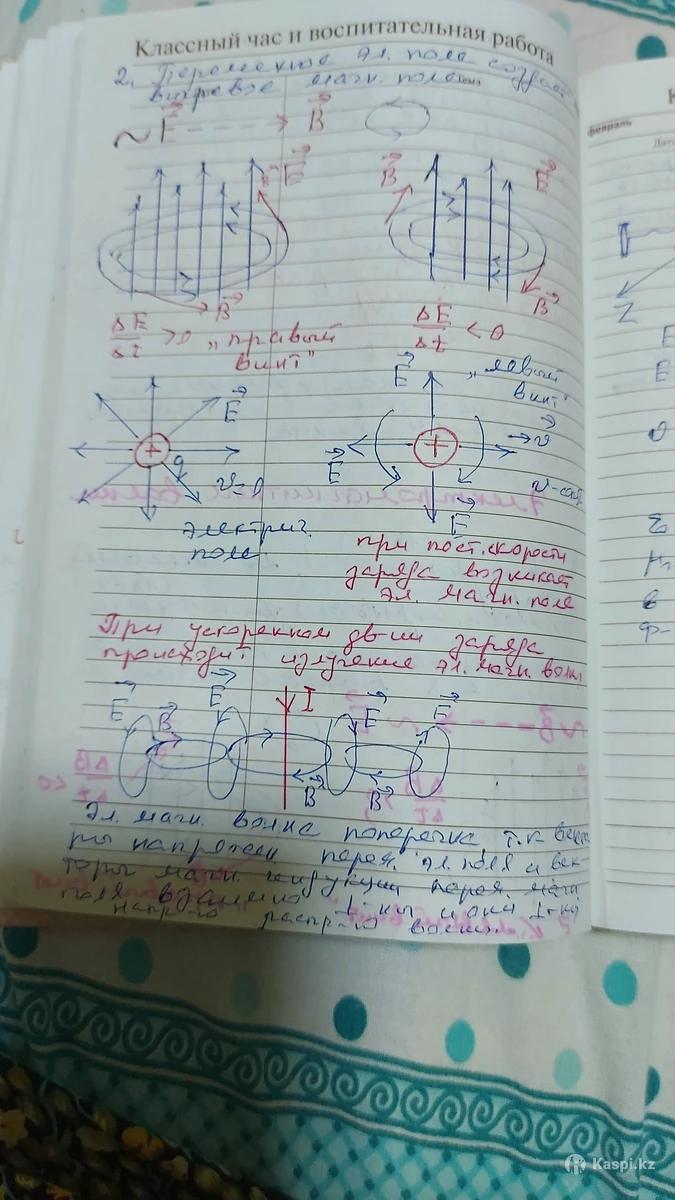 Классный час и воспитательная работа
2. Переменное эл. поле создает
вихревое магн. поле
~ E - - - -> B
B E B E
B B
ΔE/Δt > 0 „правый винт"
ΔE/Δt < 0
„левый винт"
E E
+ q
v=0
+ v
E
E
электрич.
поле
при пост. скорости
заряда возникает
эл. магн. поле
При ускоренном дв-ии заряда
происходит излучение эл. магн. волн
E B E I E E
B B
Эл. магн. волна поперечна, т.к векто
ры напряжен перем. эл. поля и век-
торы магн. индукции перем. магн
поля взаимно ⊥-ны и они ⊥-ны
напр-ю распр-ю волны.
февраль
Z
E
E
Kaspi.kz